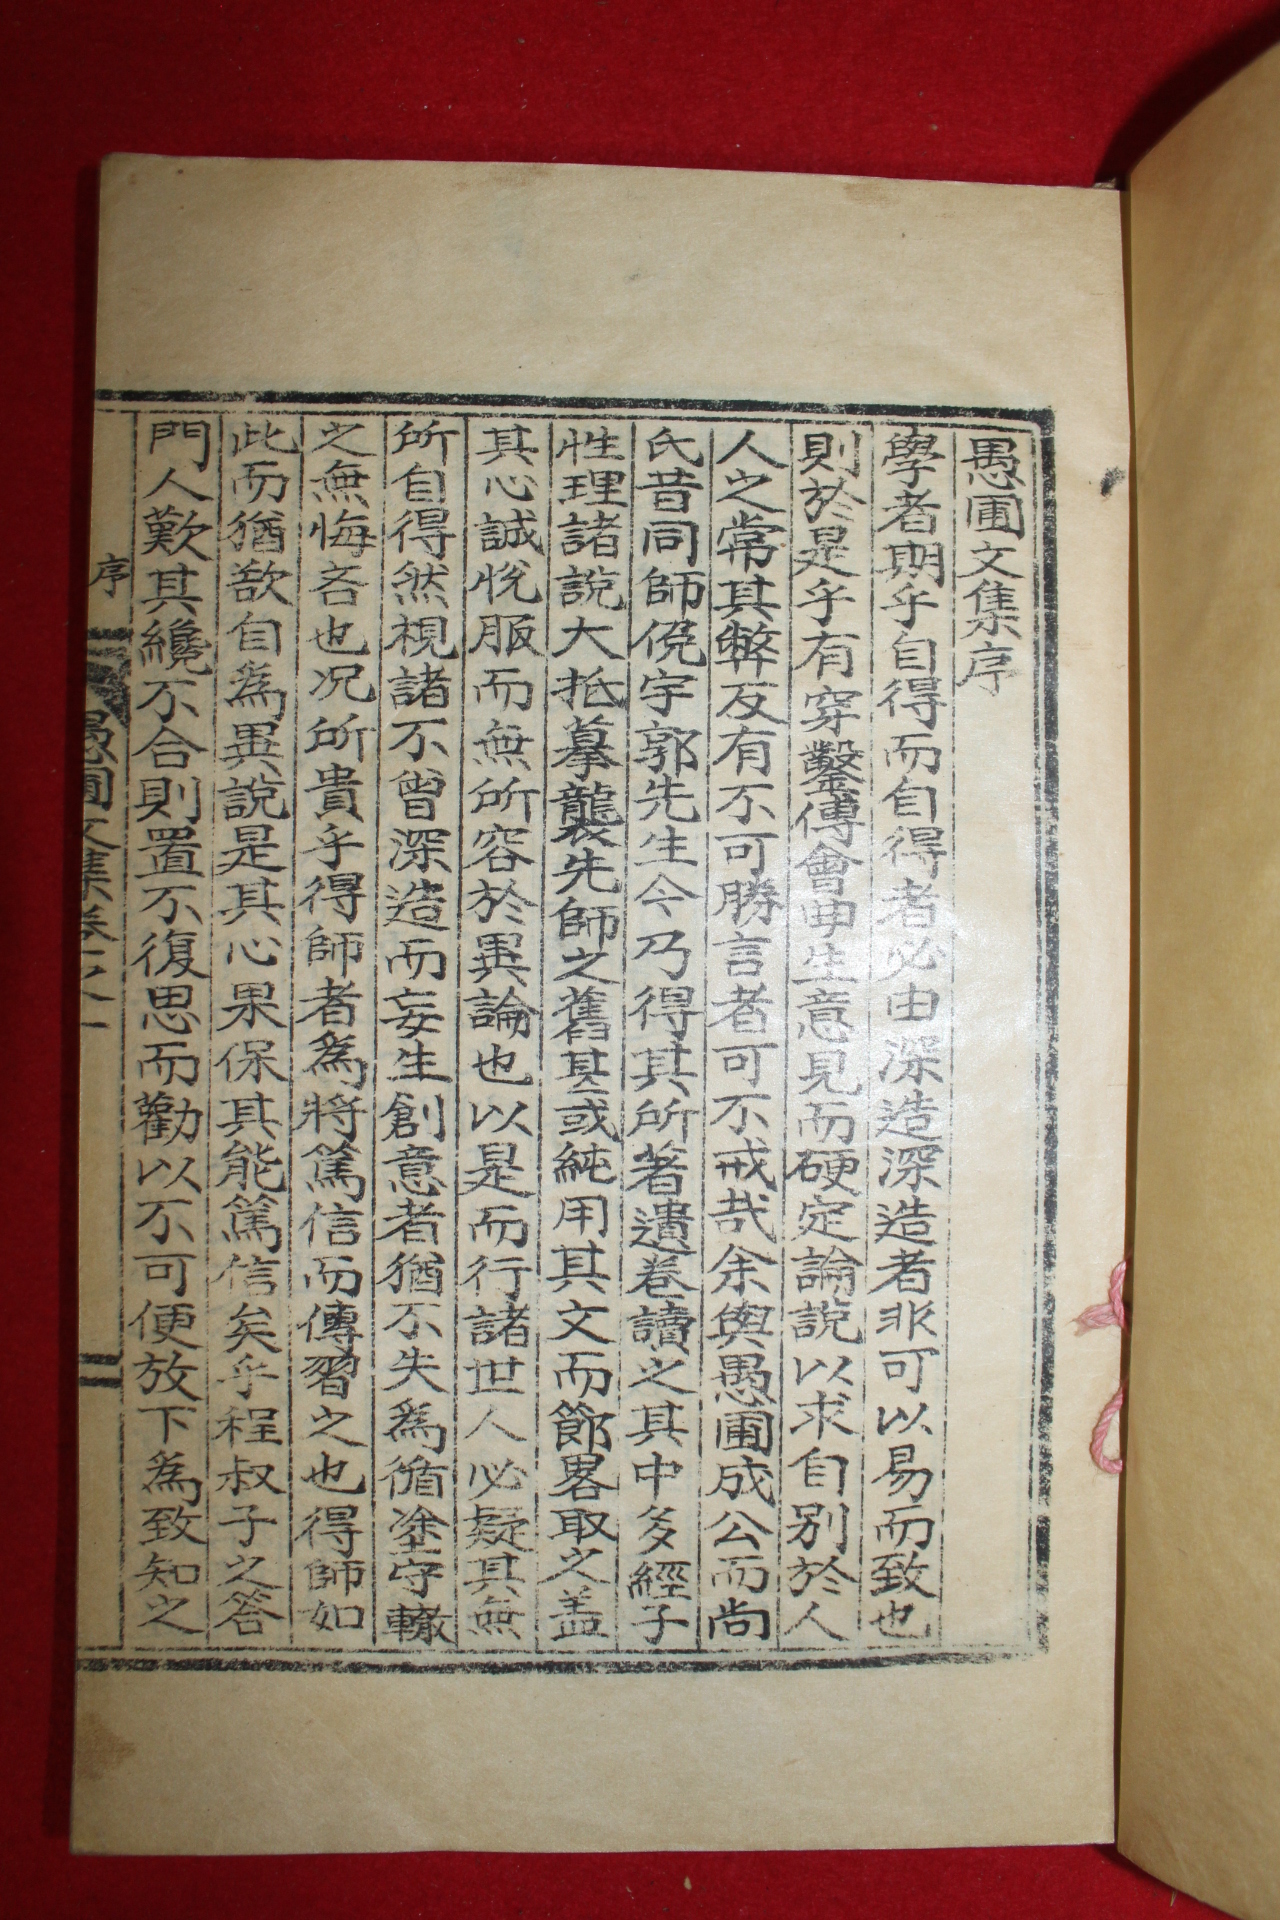 愚圃文集序
學者期乎自得而自得者必由深造深造者非可以易而致也
則於是乎有穿鑿傅會曲生意見而硬定論說以求自别於人
人之常其弊反有不可勝言者可不戒哉余與愚圃成公而尚
氏昔同師俛宇郭先生今乃得其所著遺卷讀之其中多經子
性理諸說大抵摹襲先師之舊甚或純用其文而節畧取之盖
其心誠悅服而無所容於異論也以是而行諸世人必疑其無
所自得然視諸不曾深造而妄生創意者猶不失爲循塗守轍
之無悔吝也况所貴乎得師者爲將篤信而傳習之也得師如
此而猶欲自爲異說是其心果保其能篤信矣乎程叔子之答
門人歎其纔不合則置不復思而勸以不可便放下爲致知之
序
愚圃文集卷之一